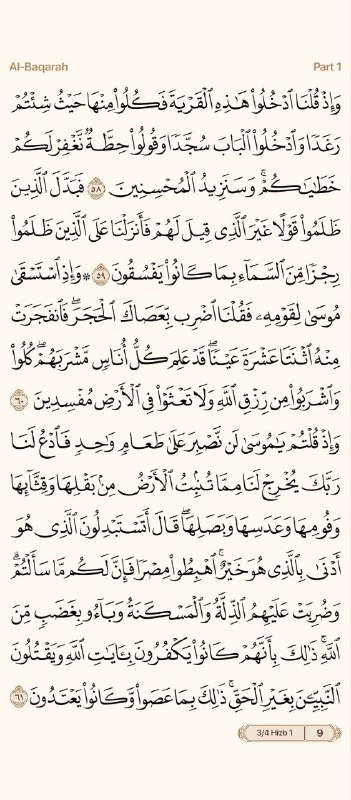 Al-Baqarah Part 1
وَإِذْ قُلْنَا ٱدْخُلُوا۟ هَٰذِهِ ٱلْقَرْيَةَ فَكُلُوا۟ مِنْهَا حَيْثُ شِئْتُمْ
رَغَدًا وَٱدْخُلُوا۟ ٱلْبَابَ سُجَّدًا وَقُولُوا۟ حِطَّةٌ نَّغْفِرْ لَكُمْ
خَطَٰيَٰكُمْ ۚ وَسَنَزِيدُ ٱلْمُحْسِنِينَ ٥٨ فَبَدَّلَ ٱلَّذِينَ
ظَلَمُوا۟ قَوْلًا غَيْرَ ٱلَّذِى قِيلَ لَهُمْ فَأَنزَلْنَا عَلَى ٱلَّذِينَ ظَلَمُوا۟
رِجْزًا مِّنَ ٱلسَّمَآءِ بِمَا كَانُوا۟ يَفْسُقُونَ ٥٩ ۞ وَإِذِ ٱسْتَسْقَىٰ
مُوسَىٰ لِقَوْمِهِۦ فَقُلْنَا ٱضْرِب بِّعَصَاكَ ٱلْحَجَرَ ۖ فَٱنفَجَرَتْ
مِنْهُ ٱثْنَتَا عَشْرَةَ عَيْنًا ۖ قَدْ عَلِمَ كُلُّ أُنَاسٍ مَّشْرَبَهُمْ ۖ كُلُوا۟
وَٱشْرَبُوا۟ مِن رِّزْقِ ٱللَّهِ وَلَا تَعْثَوْا۟ فِى ٱلْأَرْضِ مُفْسِدِينَ ٦٠
وَإِذْ قُلْتُمْ يَٰمُوسَىٰ لَن نَّصْبِرَ عَلَىٰ طَعَامٍ وَٰحِدٍ فَٱدْعُ لَنَا
رَبَّكَ يُخْرِجْ لَنَا مِمَّا تُنۢبِتُ ٱلْأَرْضُ مِنۢ بَقْلِهَا وَقِثَّآئِهَا
وَفُومِهَا وَعَدَسِهَا وَبَصَلِهَا ۖ قَالَ أَتَسْتَبْدِلُونَ ٱلَّذِى هُوَ
أَدْنَىٰ بِٱلَّذِى هُوَ خَيْرٌ ۚ ٱهْبِطُوا۟ مِصْرًا فَإِنَّ لَكُم مَّا سَأَلْتُمْ ۗ
وَضُرِبَتْ عَلَيْهِمُ ٱلذِّلَّةُ وَٱلْمَسْكَنَةُ وَبَآءُو بِغَضَبٍ مِّنَ
ٱللَّهِ ۗ ذَٰلِكَ بِأَنَّهُمْ كَانُوا۟ يَكْفُرُونَ بِـَٔايَٰتِ ٱللَّهِ وَيَقْتُلُونَ
ٱلنَّبِيِّـۧنَ بِغَيْرِ ٱلْحَقِّ ۗ ذَٰلِكَ بِمَا عَصَوا۟ وَّكَانُوا۟ يَعْتَدُونَ ٦١
3/4 Hizb 1 9